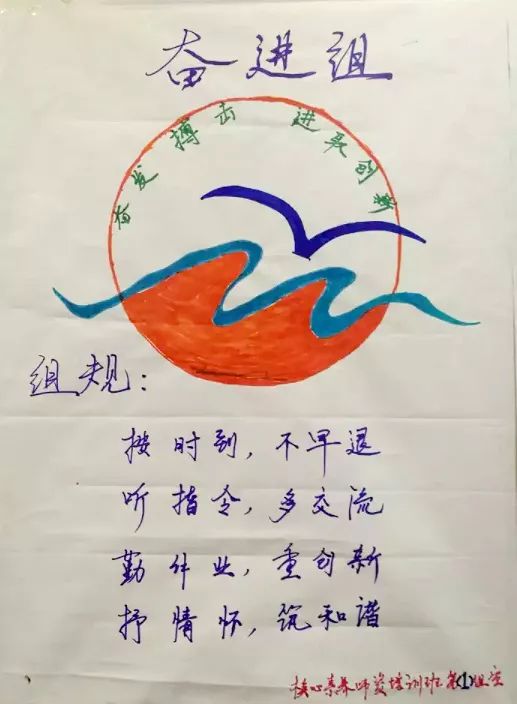 奋进组
奋发 搏击 进取创新
组规:
按时到,不早退
听指令,多交流
勤作业,重创新
抒情怀,筑和谐
核心素养师资培训班第(1)组宣